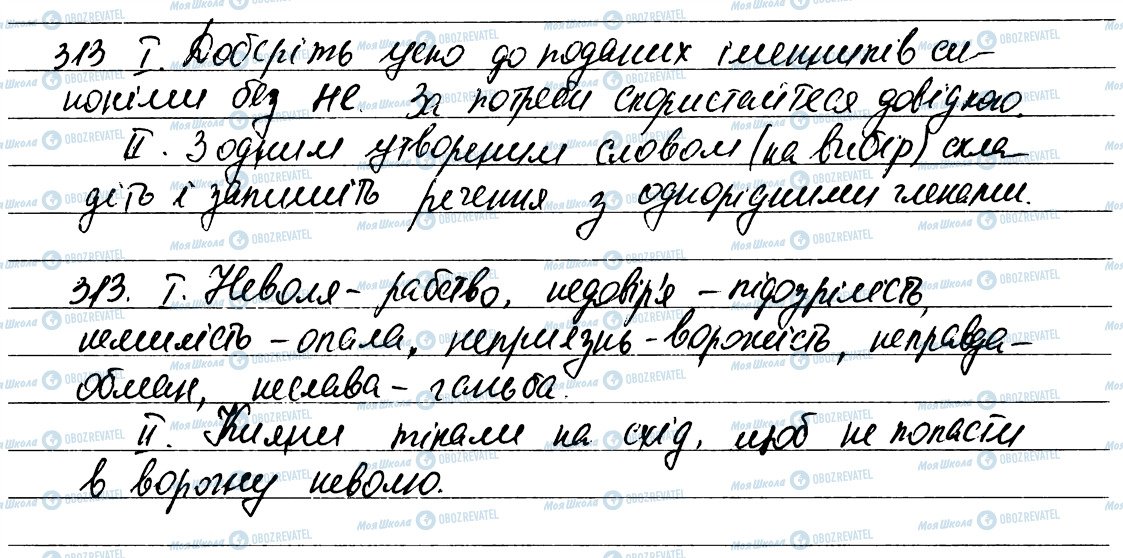 313 I. Доберіть усно до поданих іменників си-
ноніми без не. За потреби скористайтеся довідкою.
II. З одним утвореним словом (на вибір) скла-
діть і запишіть речення з однорідними членами.
313. I. Неволя - рабство, недовір'я - підозрілість,
немилість - опала, неприязнь - ворожість, неправда -
обман, неслава - ганьба.
II. Кияни тікали на схід, щоб не попасти
в ворожу неволю.